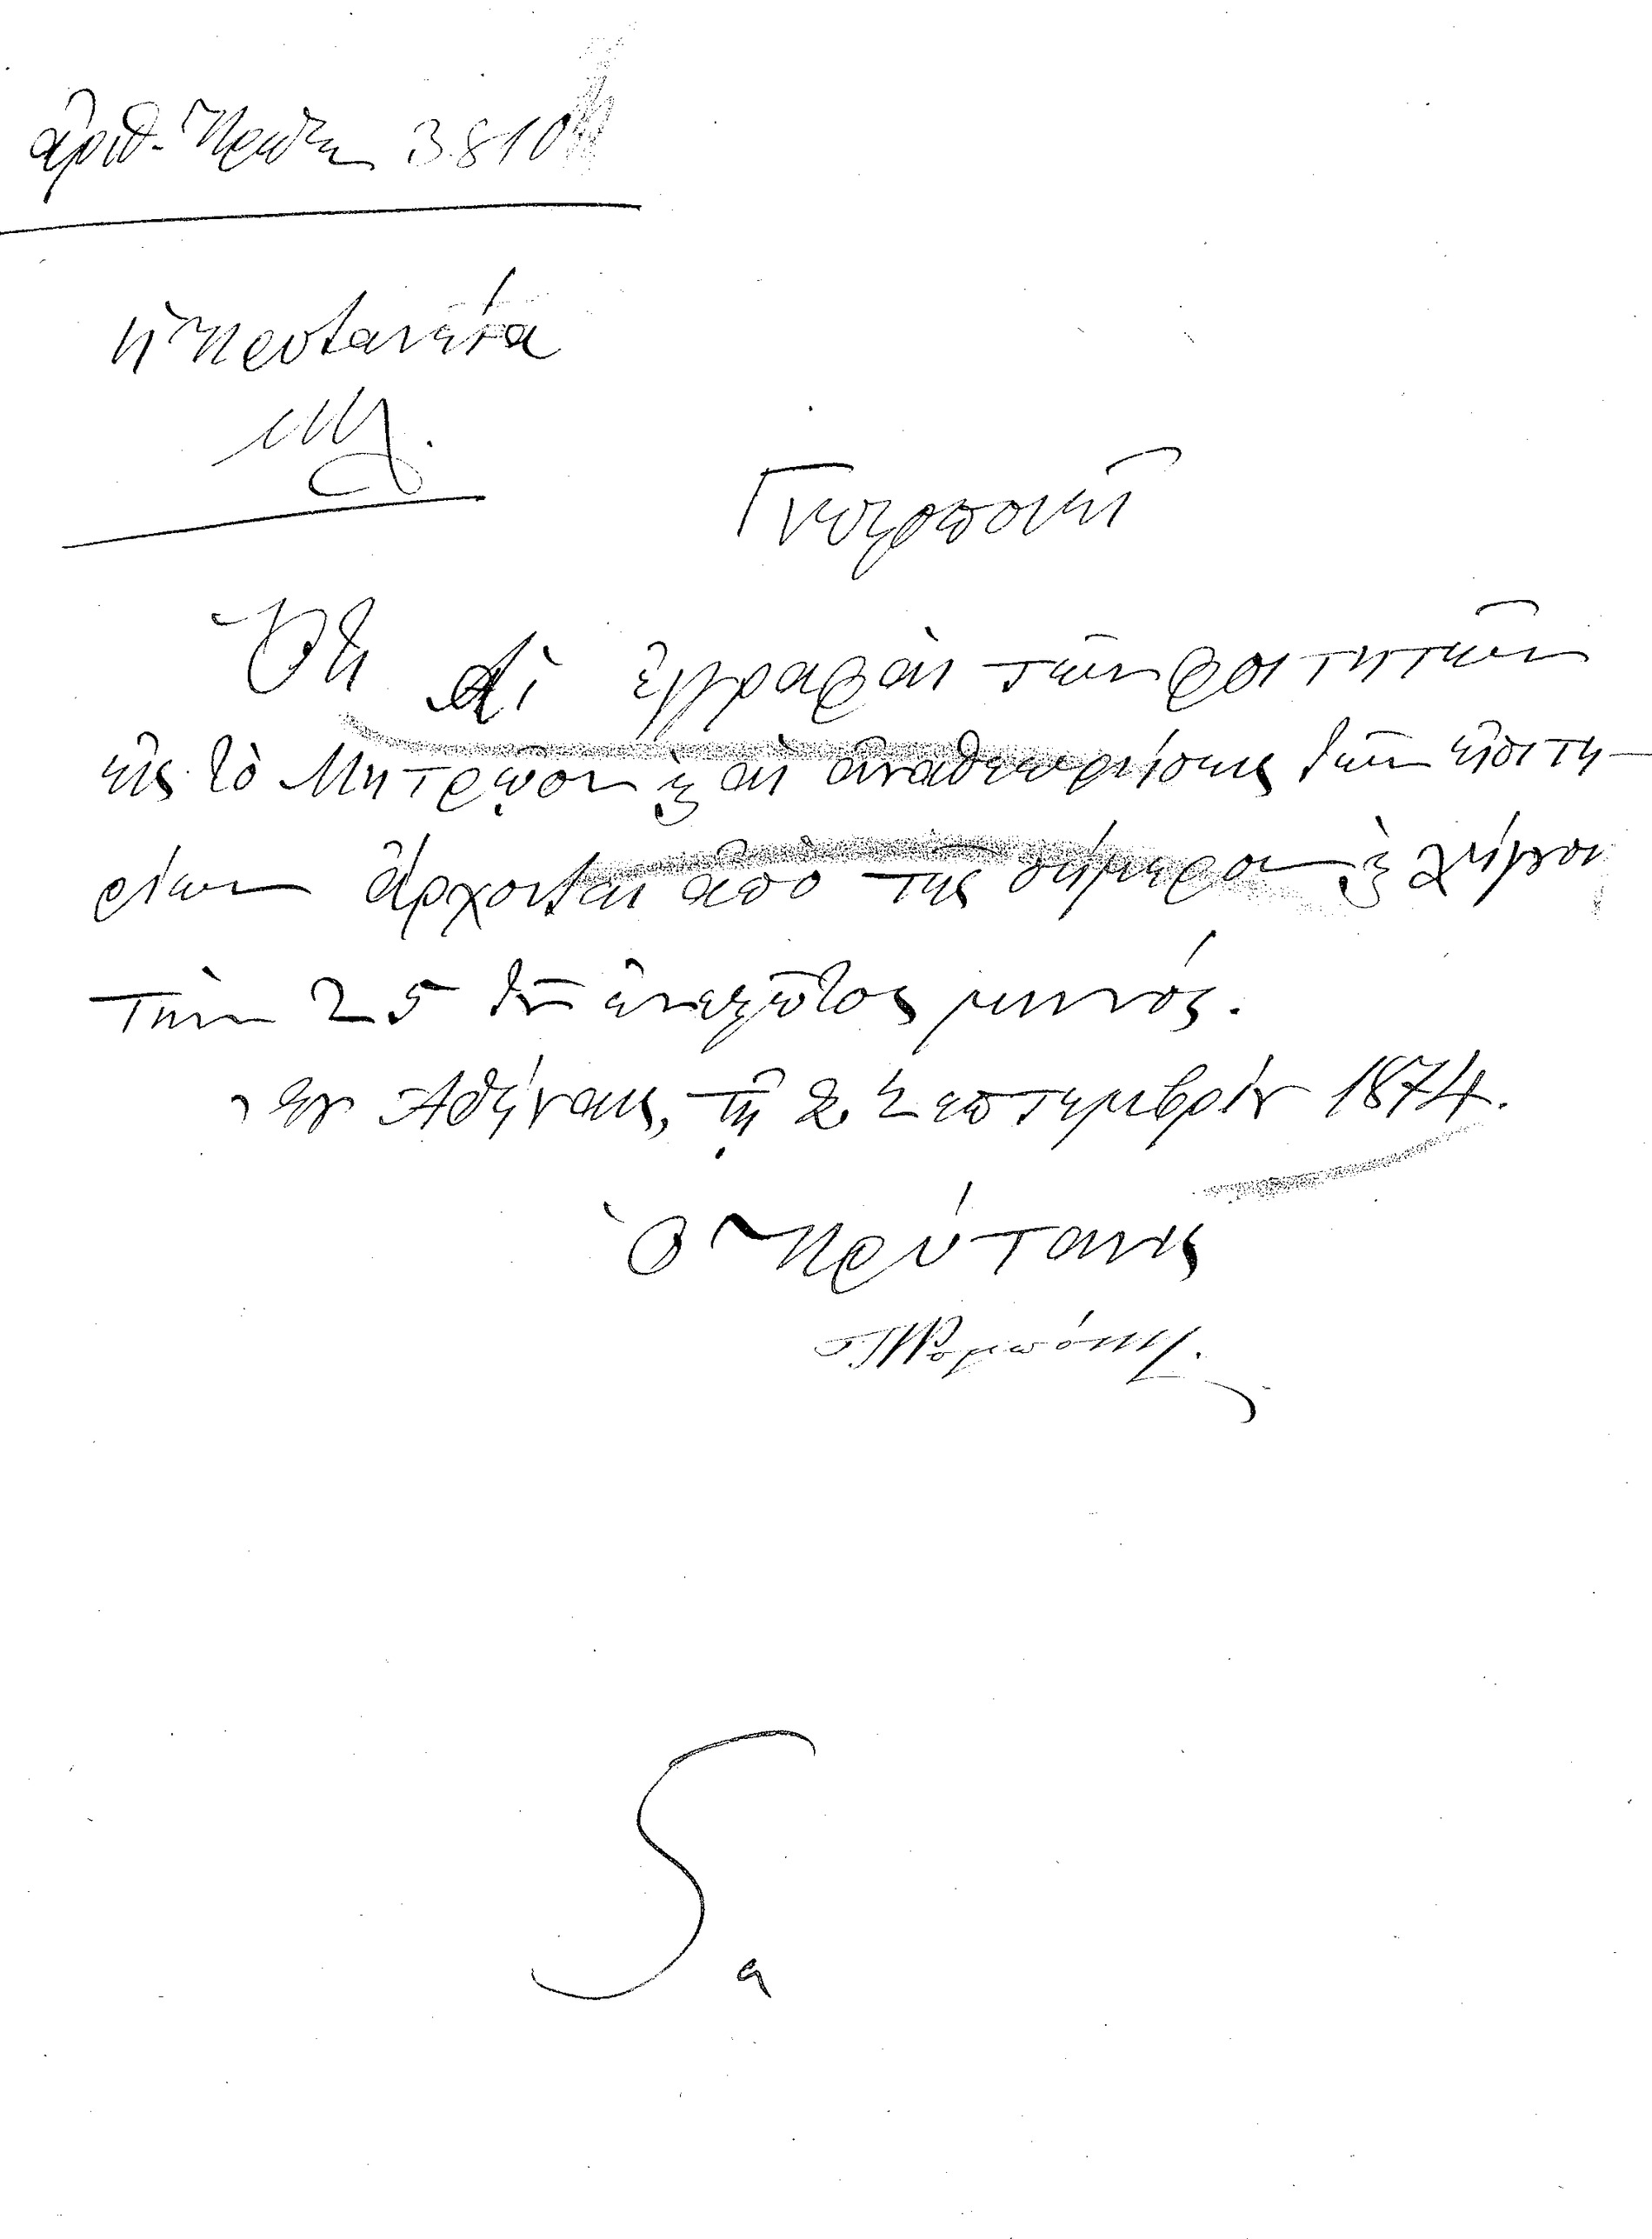 ἀριθ. Πρωτ. 3810
ἡ Πρυτανεία
Γνωστοποιεῖ
Ὅτι Αἱ ἐγγραφαὶ τῶν φοιτητῶν
εἰς τὸ Μητρῷον ϗ αἱ ἀναθεωρήσεις τῶν εἰσιτη-
ρίων ἄρχονται ἀπὸ τῆς σήμερον ϗ λήγουσι
τὴν 25 τοῦ ἐνεστῶτος μηνός.
Ἐν Ἀθήναις, τῇ 2 Σεπτεμβρίου 1874.
Ὁ Πρύτανις